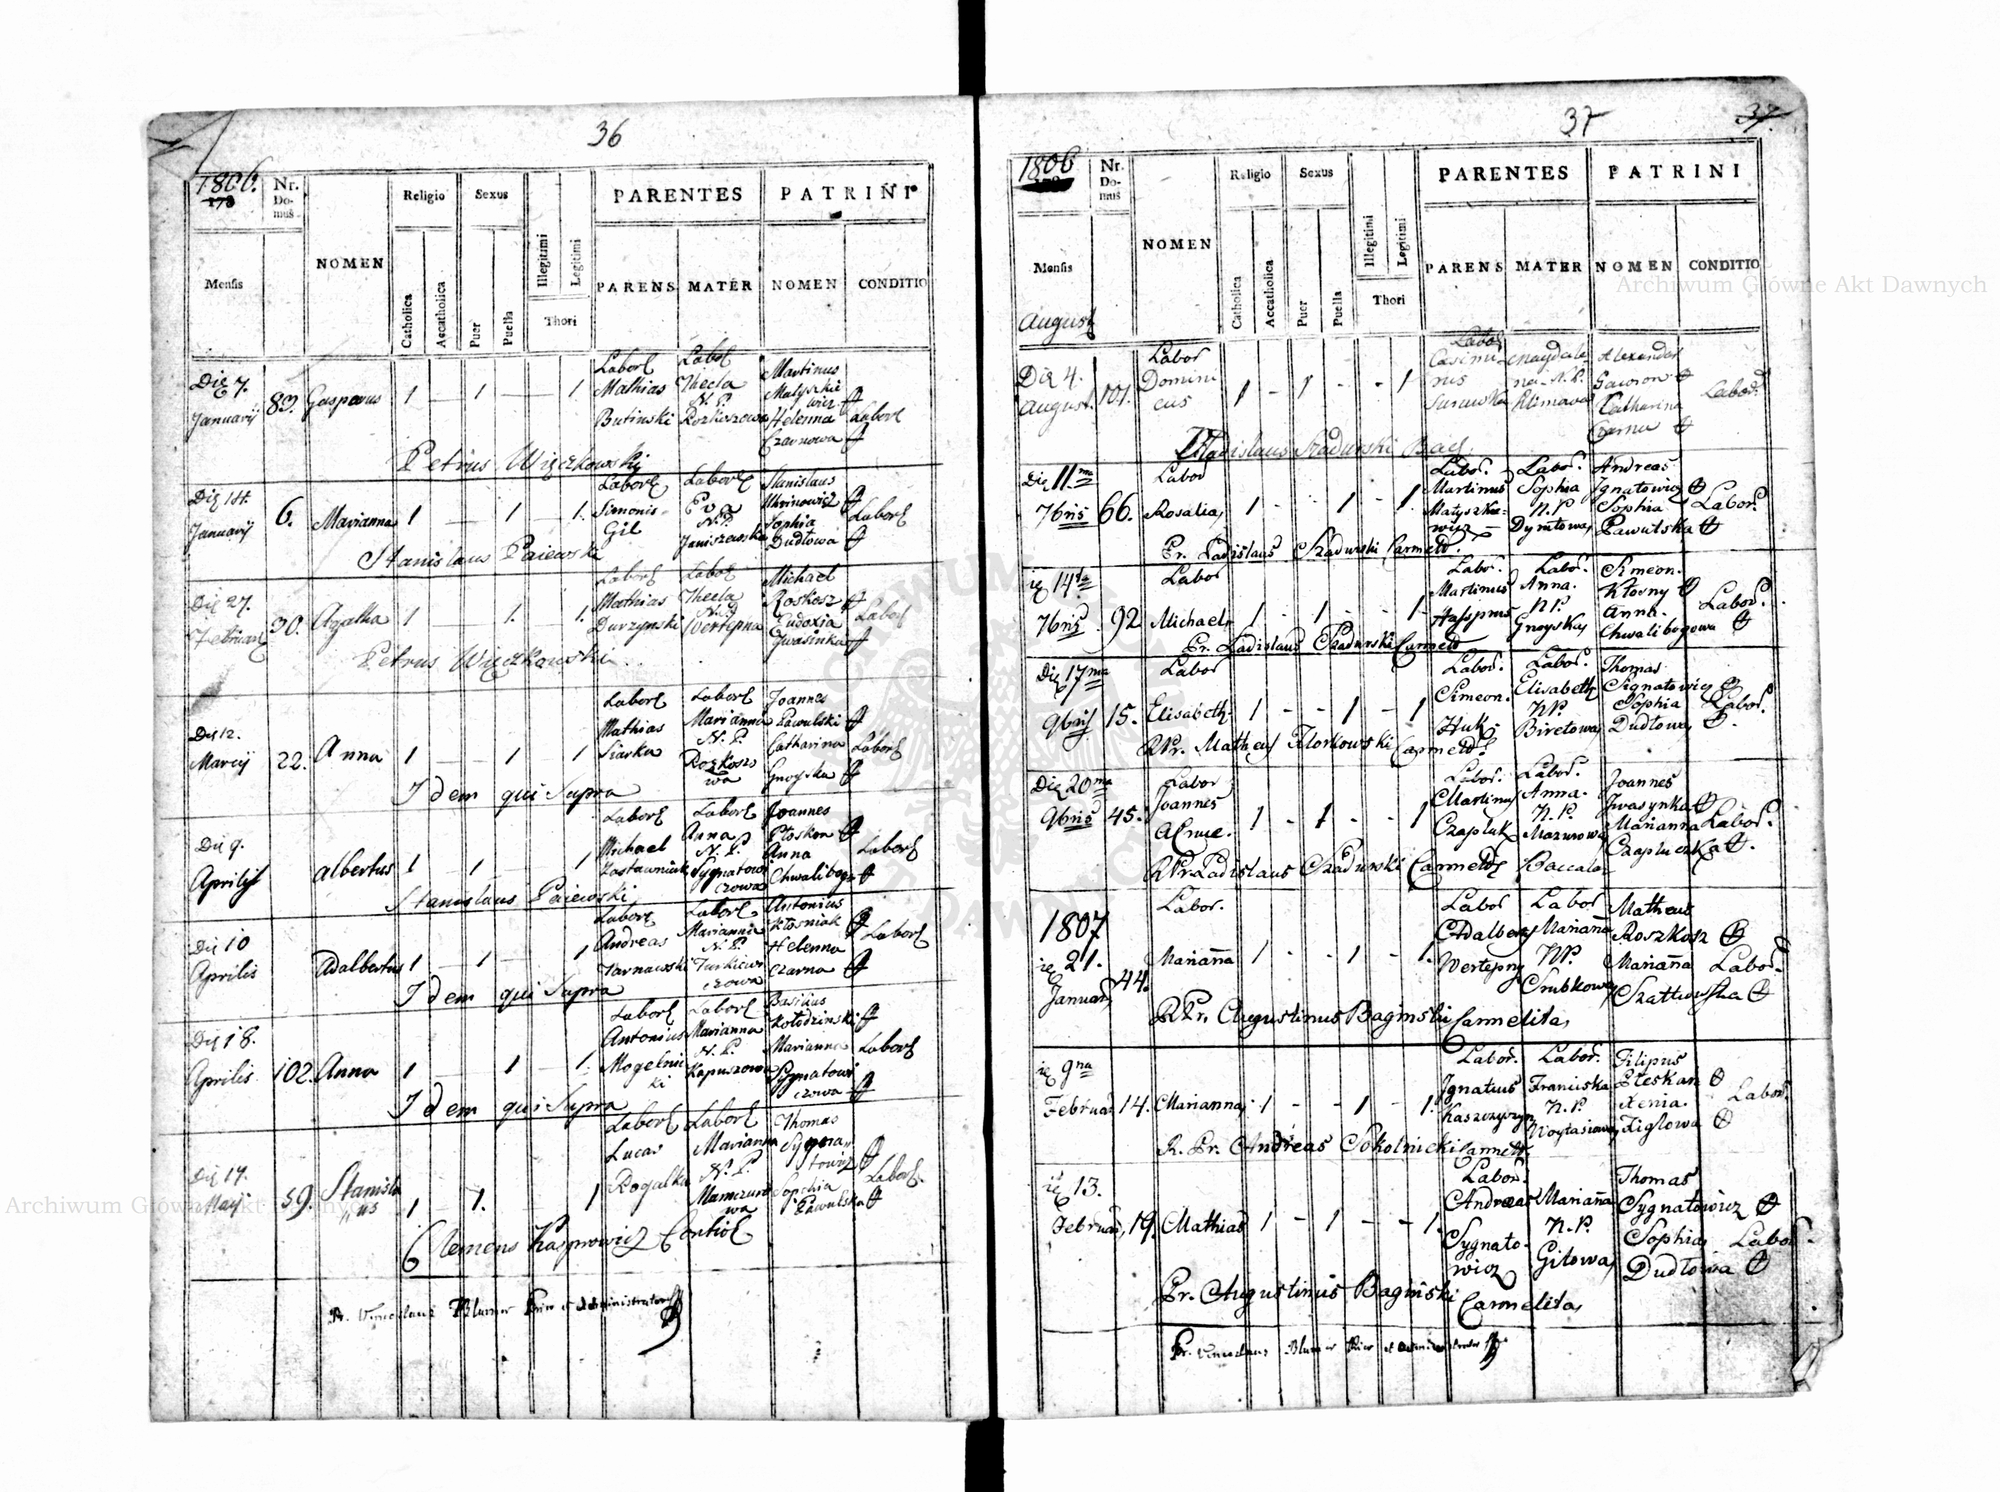 36
1806.
178
Nr. Do- mus
NOMEN
Religio
Sexus
Illegitimi
Legitimi
Thori
PARENTES
PATRINI
Mensis
Catholica
Accatholica
Puer
Puella
PARENS
MATER
NOMEN
CONDITIO
Die 7. Januarij
83.
Gasparus
1 — 1 — 1
Labor Mathias Butinski
Labor Thecla N. P. Rozkoszowa
Martinus Matyszkiewicz
Helenna Czarnowa
Labor
Petrus Więczkowski
Die 14. Januarij
6.
Marianna
1 — 1 — 1.
Labor Simonis Gil
Labor Eva N. P. Janiszewska
Stanislaus
Sophia Dudlowa
Labor
Stanislaus Paiewski
Die 27. Februarij
30.
Agatha
1 — 1. — 1.
Labor Mathias Durzynski
Labor Thecla N. P. Wertepna
Michael Roskosz
Eudoxia Iwasinka
Labor
Petrus Więczkowski
Die 12. Marcij
22.
Anna
1 — 1 — 1
Labor Mathias Siarka
Labor Marianna N. P. Rozkoszowa
Joannes Pawulski
Catharina Gnoyska
Labor
Idem qui Supra
Die 9. Aprilis
Albertus
1 — 1 — 1
Labor Michael Zastawniak
Labor Anna N. P. Sygnatowiczowa
Joannes Ploskon
Anna Chwaliboga
Labor
Stanislaus Paiewski
Die 10 Aprilis
Adalbertus
1 — 1 — 1
Labor Andreas Tarnawski
Labor Marianna N. P.
Antonius Klosniak
Helenna Czarna
Labor
Idem qui Supra
Die 18. Aprilis
102.
Anna
1 — 1 — 1.
Labor Antonius Mogelnicki
Labor Marianna N. P. Kapuszowa
Basilius Kolodzinski
Marianna Sygnatowiczowa
Labor
Idem qui Supra
Die 17. Maij
59.
Stanislaus
1 — 1. — 1
Labor Lucas Rogalka
Labor Marianna N. P. Mamczurowa
Thomas Sygnatowicz
Sophia Pawulska
Labor.
Clemens Kasprowicz
Pr. Venceslaus Blumer Prior et Administrator
37
37.
1806
Nr. Do- mus
NOMEN
Religio
Sexus
Illegitimi
Legitimi
Thori
PARENTES
PATRINI
Mensis
Catholica
Accatholica
Puer
Puella
PARENS
MATER
NOMEN
CONDITIO
August
Die 4. August.
101.
Labor Dominicus
1 - 1 - - 1
Labor Casimirus
Magdalena N. P. Klimowa
Alexander Gawron
Catharina Czarna
Labor.
Vladislaus Szadurski Bacc.
Die 11.ma 7bris
66.
Labor Rosalia
1 - - 1 - 1
Labor. Martinus Matyszkiewicz
Labor. Sophia N. P. Dyrdowa
Andreas Ignatowicz
Sophia Pawulska
Labor.
Pr. Ladislaus Szadurski Carmelit.
ie 14ta 7bris
92
Labor Michael
1 - 1 - - 1
Labor. Martinus
Labor. Anna. N. P. Gnoyska
Simeon. Klosny
Anna. Chwalibogowa
Labor.
Pr. Ladislaus Szadurski Carmelit
Die 17ma 9bris
15.
Labor Elisabeth
1 - - 1 - 1
Labor. Simeon. Huk
Labor. Elisabeth N. P. Biretowa
Thomas Signatowicz
Sophia Dudlowa
Labor.
R. Pr. Matheus Florkowski Carmelit
Die 20ma 9bris
45.
Labor Joannes
1 - 1 - - 1
Labor. Martinus Czapluk
Labor. Anna. N. P. Mazurowa
Joannes Iwasynka
Marianna Czapluczka
Labor.
R. Pr. Ladislaus Szadurski Carmelit Baccala
1807
ie 21. Januarij
44.
Labor. Marianna
1 - - 1 - 1.
Labor Adalbert Wertepny
Labor Marianna N. P.
Matheus Roszkosz
Marianna
Labor.
R. Pr. Augustinus Baginski Carmelita
ie 9na Februar
14.
Marianna
1 - - 1 - 1.
Labor. Ignatius
Labor. Franciska N. P.
Filipus
Xenia. Ziglowa
Labor.
R. Pr. Andreas Sokolnicki Carmelit
ie 13. Februar
19.
Mathias
1 - 1 - - 1
Labor. Andreas Sygnatowicz
Marianna N. P. Gilowa
Thomas Sygnatowicz
Sophia Dudlowa
Labor.
Pr. Augustinus Baginski Carmelita
Pr. Venceslaus Blumer Prior et Administrator
Archiwum Główne Akt Dawnych
Archiwum Główne Akt Dawnych